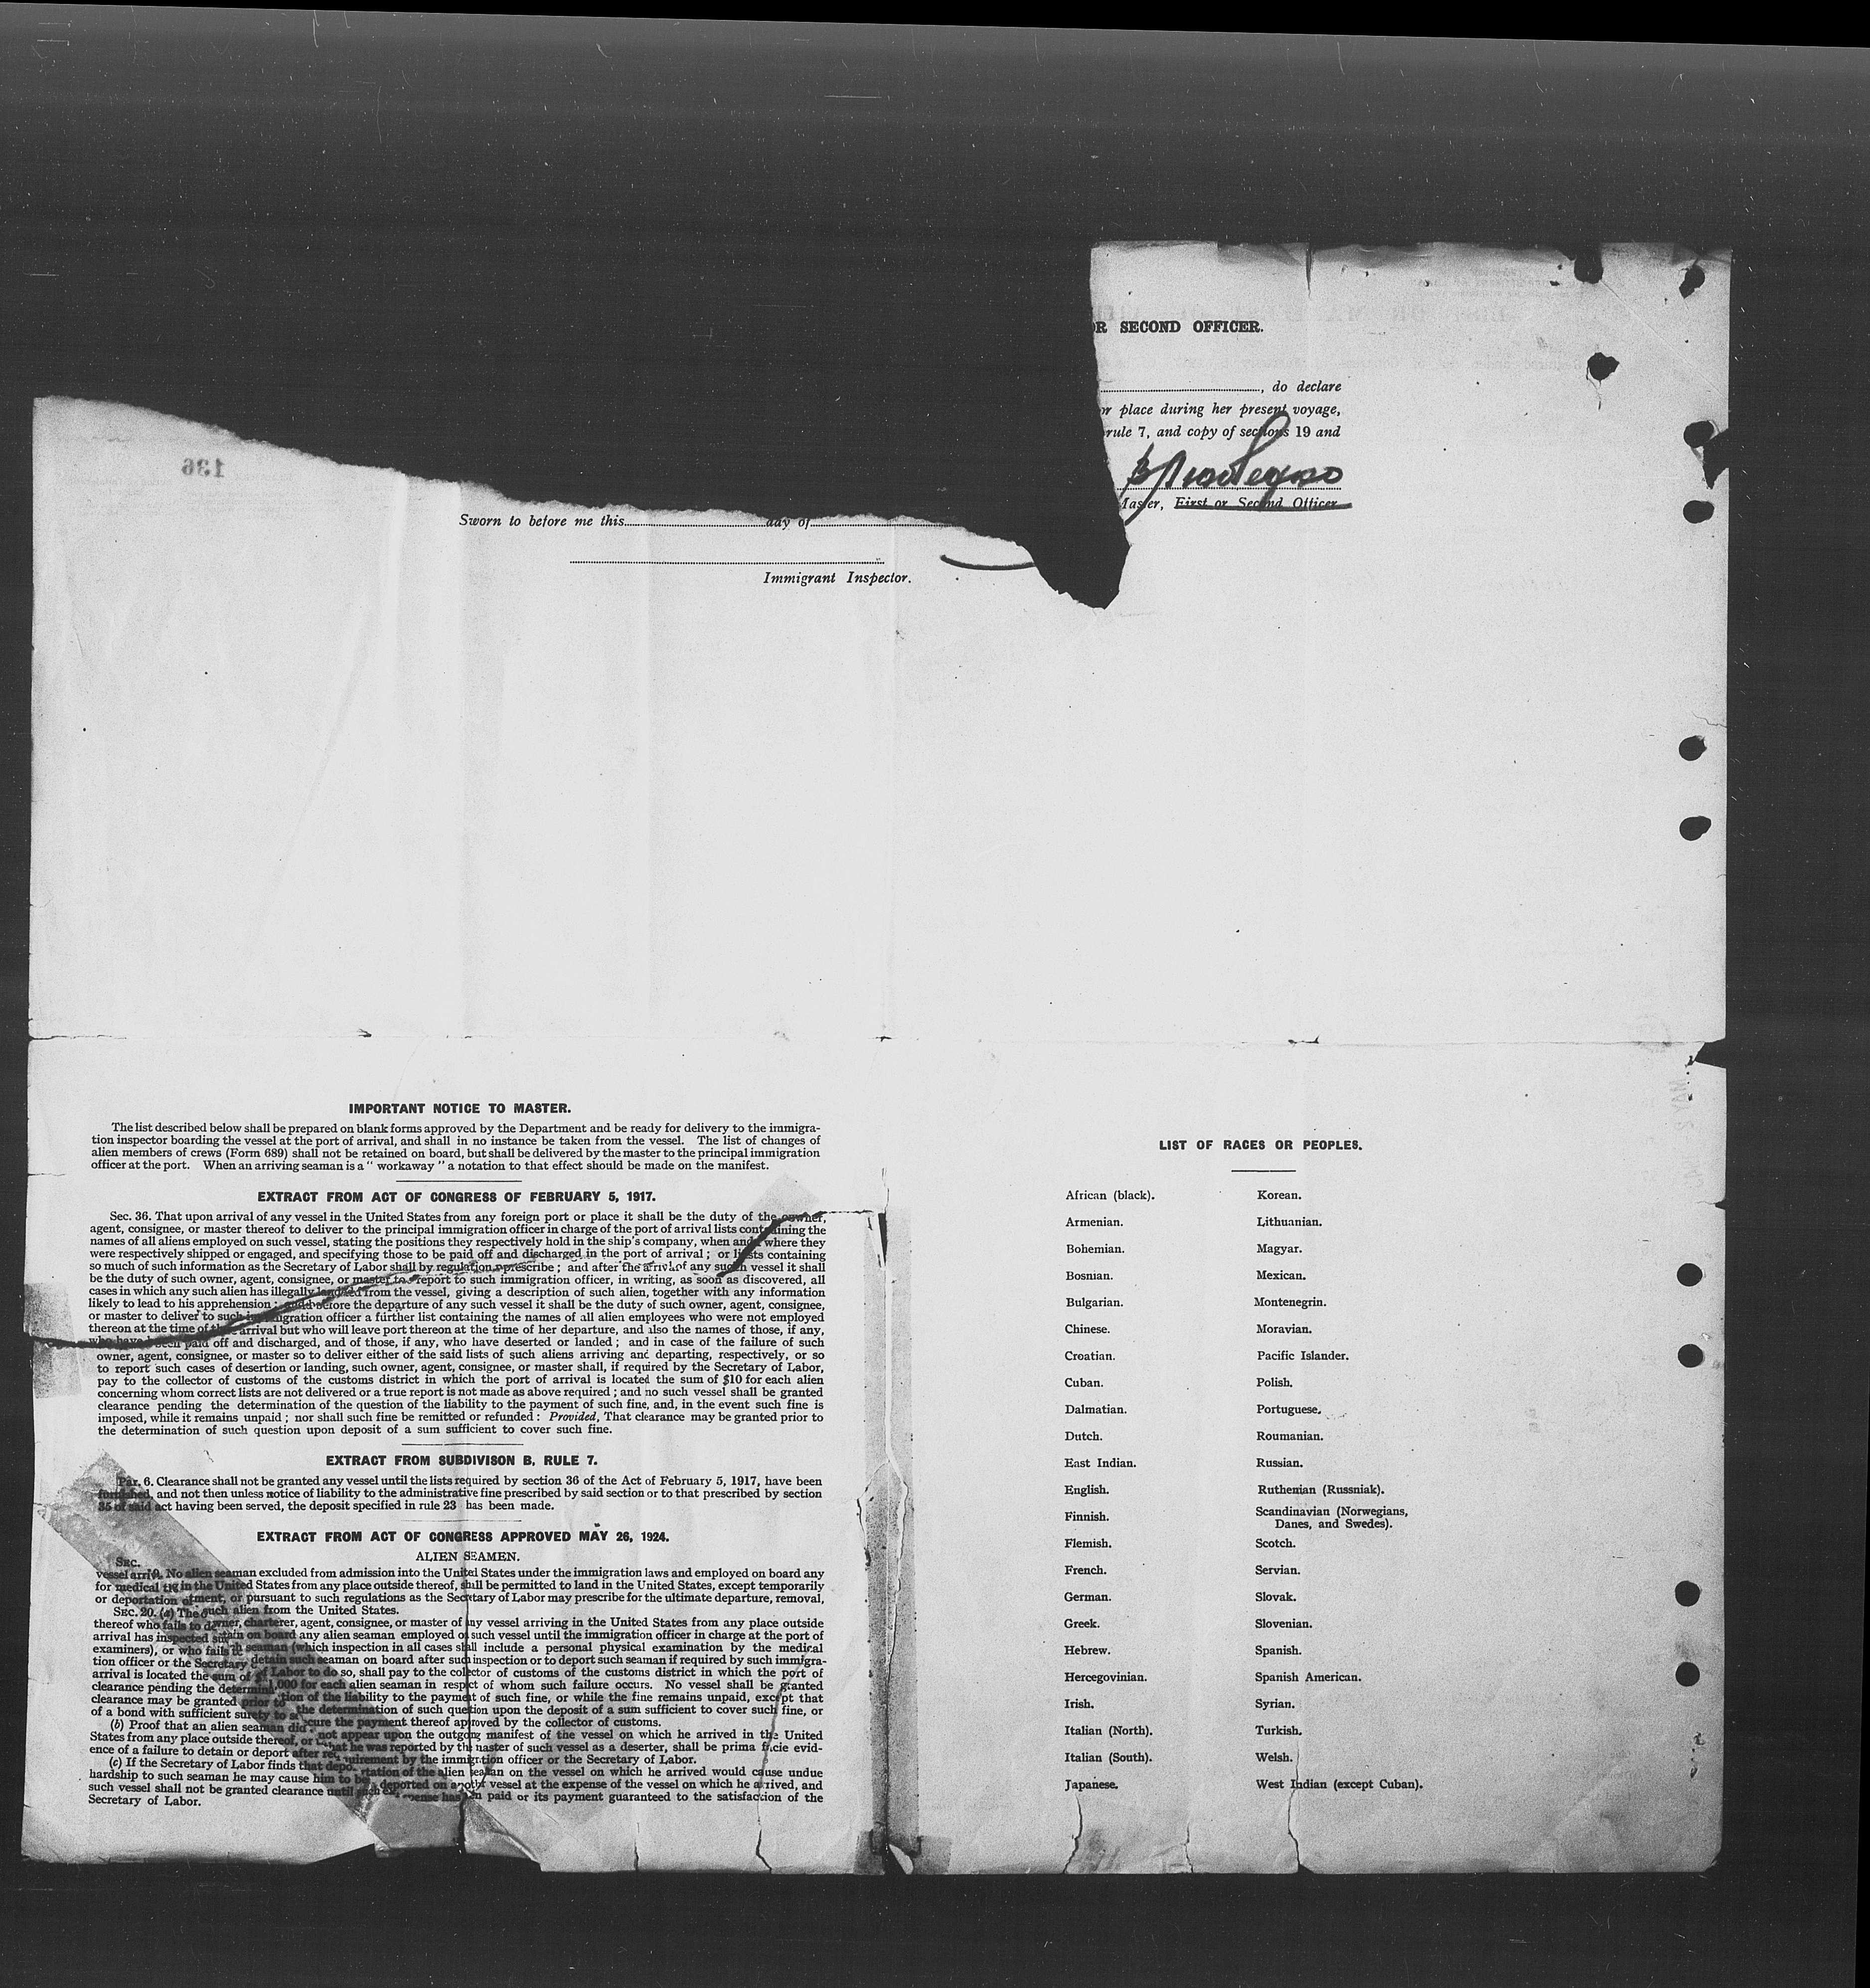 R SECOND OFFICER.
, do declare
or place during her present voyage,
rule 7, and copy of sections 19 and
Master, First or Second Officer
136
Sworn to before me this day of
Immigrant Inspector.
IMPORTANT NOTICE TO MASTER.
The list described below shall be prepared on blank forms approved by the Department and be ready for delivery to the immigra-
tion inspector boarding the vessel at the port of arrival, and shall in no instance be taken from the vessel. The list of changes of
alien members of crews (Form 689) shall not be retained on board, but shall be delivered by the master to the principal immigration
officer at the port. When an arriving seaman is a "workaway" a notation to that effect should be made on the manifest.
EXTRACT FROM ACT OF CONGRESS OF FEBRUARY 5, 1917.
Sec. 36. That upon arrival of any vessel in the United States from any foreign port or place it shall be the duty of the owner,
agent, consignee, or master thereof to deliver to the principal immigration officer in charge of the port of arrival lists containing the
names of all aliens employed on such vessel, stating the positions they respectively hold in the ship's company, when and where they
were respectively shipped or engaged, and specifying those to be paid off and discharged in the port of arrival; or lists containing
so much of such information as the Secretary of Labor shall by regulation prescribe; and after the arrival of any such vessel it shall
be the duty of such owner, agent, consignee, or master to report to such immigration officer, in writing, as soon as discovered, all
cases in which any such alien has illegally landed from the vessel, giving a description of such alien, together with any information
likely to lead to his apprehension; and before the departure of any such vessel it shall be the duty of such owner, agent, consignee,
or master to deliver to such immigration officer a further list containing the names of all alien employees who were not employed
thereon at the time of the arrival but who will leave port thereon at the time of her departure, and also the names of those, if any,
who have been paid off and discharged, and of those, if any, who have deserted or landed; and in case of the failure of such
owner, agent, consignee, or master so to deliver either of the said lists of such aliens arriving and departing, respectively, or so
to report such cases of desertion or landing, such owner, agent, consignee, or master shall, if required by the Secretary of Labor,
pay to the collector of customs of the customs district in which the port of arrival is located the sum of $10 for each alien
concerning whom correct lists are not delivered or a true report is not made as above required; and no such vessel shall be granted
clearance pending the determination of the question of the liability to the payment of such fine, and, in the event such fine is
imposed, while it remains unpaid; nor shall such fine be remitted or refunded: Provided, That clearance may be granted prior to
the determination of such question upon deposit of a sum sufficient to cover such fine.
EXTRACT FROM SUBDIVISON B, RULE 7.
Par. 6. Clearance shall not be granted any vessel until the lists required by section 36 of the Act of February 5, 1917, have been
furnished, and not then unless notice of liability to the administrative fine prescribed by said section or to that prescribed by section
35 of said act having been served, the deposit specified in rule 23 has been made.
EXTRACT FROM ACT OF CONGRESS APPROVED MAY 26, 1924.
ALIEN SEAMEN.
SEC. 
vessel arri 9. No alien seaman excluded from admission into the United States under the immigration laws and employed on board any
for medical tr g in the United States from any place outside thereof, shall be permitted to land in the United States, except temporarily
or deportation atment, or pursuant to such regulations as the Secretary of Labor may prescribe for the ultimate departure, removal,
SEC. 20. (a) The such alien from the United States.
thereof who fails to d wner, charterer, agent, consignee, or master of any vessel arriving in the United States from any place outside
arrival has inspected su tain on board any alien seaman employed on such vessel until the immigration officer in charge at the port of
examiners), or who fails t h seaman (which inspection in all cases shall include a personal physical examination by the medical
tion officer or the Secretary detain such seaman on board after such inspection or to deport such seaman if required by such immigra-
arrival is located the sum of of Labor to do so, shall pay to the collector of customs of the customs district in which the port of
clearance pending the determina 1,000 for each alien seaman in respect of whom such failure occurs. No vessel shall be granted
clearance may be granted prior to tion of the liability to the payment of such fine, or while the fine remains unpaid, except that
of a bond with sufficient surety to s the determination of such question upon the deposit of a sum sufficient to cover such fine, or
cure the payment thereof approved by the collector of customs.
(b) Proof that an alien seaman did not appear upon the outgoing manifest of the vessel on which he arrived in the United
States from any place outside thereof, or that he was reported by the master of such vessel as a deserter, shall be prima facie evid-
ence of a failure to detain or deport after requirement by the immigration officer or the Secretary of Labor.
(c) If the Secretary of Labor finds that deportation of the alien seaman on the vessel on which he arrived would cause undue
hardship to such seaman he may cause him to be deported on another vessel at the expense of the vessel on which he arrived, and
such vessel shall not be granted clearance until such expense has been paid or its payment guaranteed to the satisfaction of the
Secretary of Labor.
LIST OF RACES OR PEOPLES.
African (black).
Armenian.
Bohemian.
Bosnian.
Bulgarian.
Chinese.
Croatian.
Cuban.
Dalmatian.
Dutch.
East Indian.
English.
Finnish.
Flemish.
French.
German.
Greek.
Hebrew.
Hercegovinian.
Irish.
Italian (North).
Italian (South).
Japanese.
Korean.
Lithuanian.
Magyar.
Mexican.
Montenegrin.
Moravian.
Pacific Islander.
Polish.
Portuguese.
Roumanian.
Russian.
Ruthenian (Russniak).
Scandinavian (Norwegians,
Danes, and Swedes).
Scotch.
Servian.
Slovak.
Slovenian.
Spanish.
Spanish American.
Syrian.
Turkish.
Welsh.
West Indian (except Cuban).